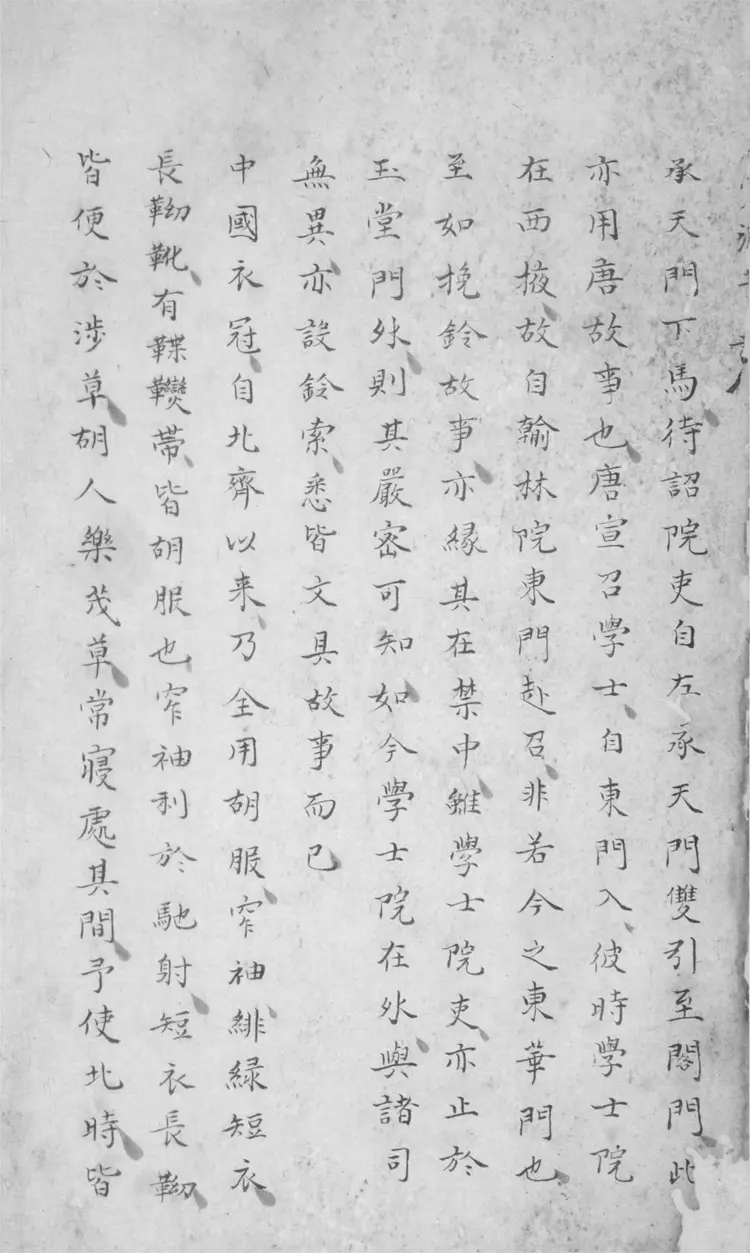 承天門下馬待詔院吏自左承天門雙引至閣門此
亦用唐故事也唐宣召學士自東門入彼時學士院
在西掖故自翰林院東門赴召非若今之東華門也
至如挽鈴故事亦緣其在禁中雖學士院吏亦止於
玉堂門外則其嚴密可知如今學士院在外與諸司
無異亦設鈴索悉皆文具故事而已
中國衣冠自北齊以来乃全用胡服窄袖緋緑短衣
長靿靴有鞢帶皆胡服也窄袖利於馳射短衣長靿
皆便於涉草胡人樂茂草常寢處其間予使北時皆